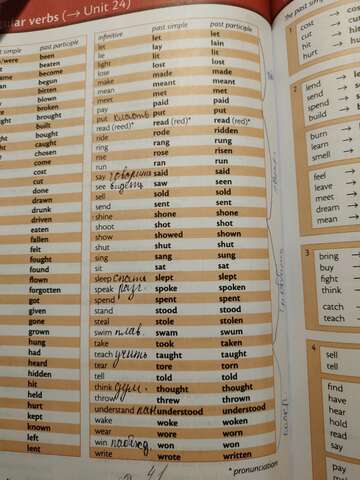 ular verbs (→ Unit 24)
simple past participle
/were been
beaten
become
begun
bitten
blown
broken
brought
built
bought
caught
chosen
come
cost
cut
done
drawn
drunk
driven
eaten
fallen
felt
fought
found
flown
forgotten
got
given
gone
grown
hung
had
heard
hidden
hit
held
hurt
kept
known
left
lent
infinitive past simple past participle
let let let
lie lay lain
light lit lit
lose lost lost
make made made
mean meant meant
meet met met
pay paid paid
put класть put put
read (reed)* read (red)* read (red)*
ride rode ridden
ring rang rung
rise rose risen
run ran run
say говорить said said
see видеть saw seen
sell sold sold
send sent sent
shine shone shone
shoot shot shot
show showed shown
shut shut shut
sing sang sung
sit sat sat
sleep спать slept slept
speak разг. spoke spoken
spend spent spent
stand stood stood
steal stole stolen
swim плав. swam swum
take took taken
teach учить taught taught
tear tore torn
tell told told
think дум. thought thought
throw threw thrown
understand пон understood understood
wake woke woken
wear wore worn
win won won
write wrote written
* pronunciation
The past simple
1 cost → cost
cut → cut
hit → hit
hurt → hu
2 lend →
send →
spend →
build →
burn →
learn →
smell →
feel →
leave →
meet →
dream →
mean →
3 bring →
buy →
fight →
think →
catch →
teach →
4 sell
tell
find
have
hear
hold
read
say
pay
make